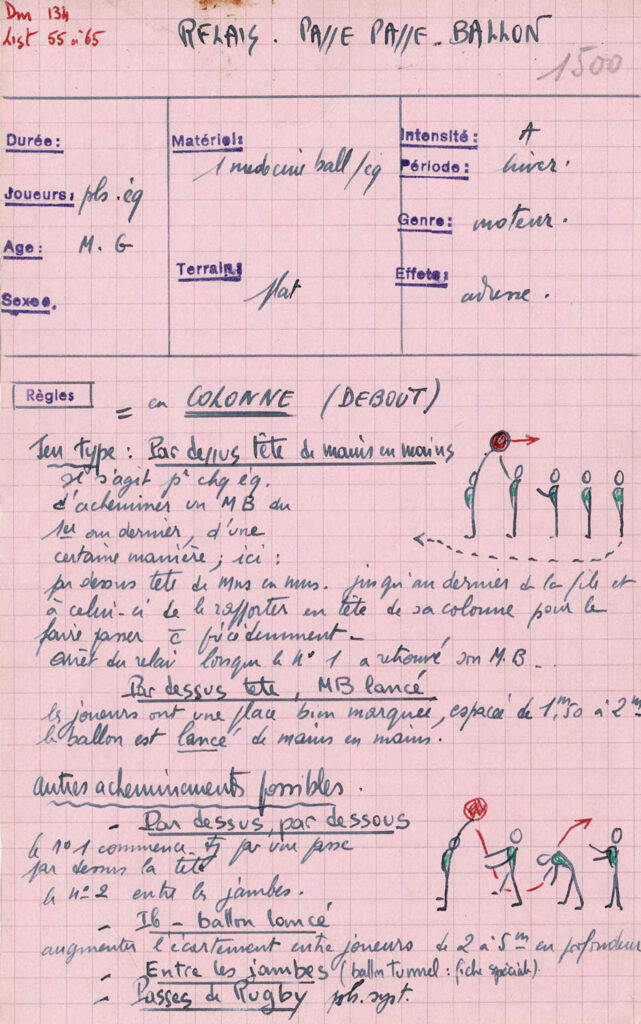 Dm 134
List 55 à 65
RELAIS. PASSE PASSE-BALLON
1500
Durée:
Joueurs: pls. éq
Age: M. G
Sexe.
Matériel:
1 medecine ball/éq
Terrain:
plat
Intensité: A
Période: hiver.
Genre: moteur.
Effets: adresse.
Règles = en COLONNE (DEBOUT)
Jeu type: Par dessus tête de mains en mains
Il s'agit pr chq éq.
d'acheminer un MB du
1er au dernier, d'une
certaine manière; ici:
par dessus tête de mns en mns. jusqu'au dernier de la file et
à celui-ci de le rapporter en tête de sa colonne pour le
faire passer c̄ précédemment-
arrêt du relai lorsque le n° 1 a retrouvé son M.B-
Par dessus tête, MB lancé
les joueurs ont une place bien marquée, espacée de 1,m50 à 2m
le ballon est lancé de mains en mains.
Autres acheminements possibles.
- Par dessus, par dessous
le n°1 commence par une passe
par dessus la tête
le n°2 entre les jambes.
- Ib - ballon lancé
augmenter l'écartement entre joueurs de 2 à 5m en profondeur
- Entre les jambes (ballon tunnel: fiche spéciale).
- Passes de Rugby pls. syst.